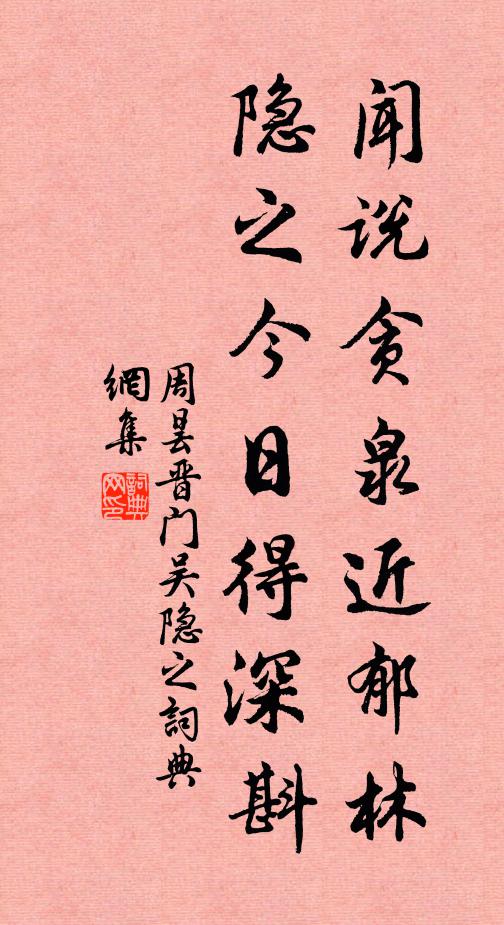 闻说贪泉近郁林
隐之今日得深斟
周昙晋门吴隐之詞典
網集
詞典
网印